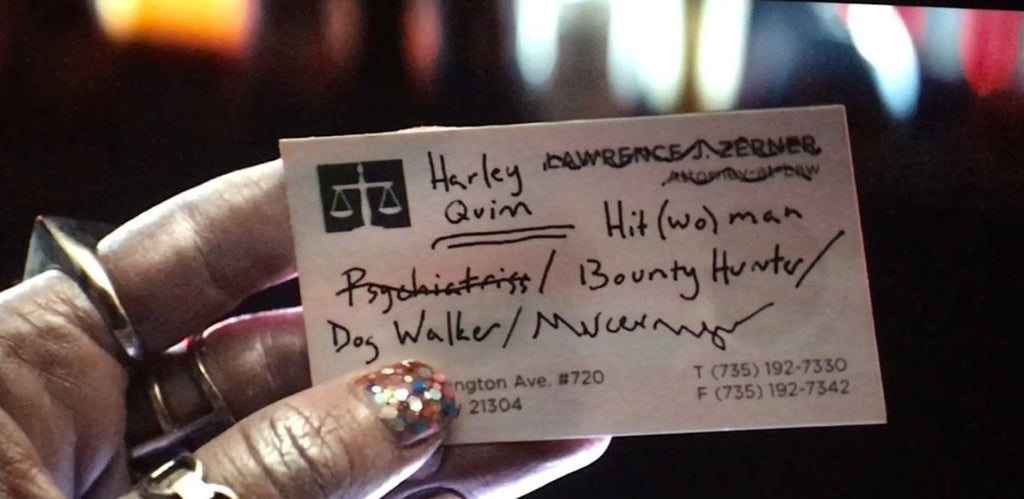 Harley LAWRENCE J. ZERNER
Attorney-at-Law
Quinn Hit(wo)man
Psychiatriss/ Bounty Hunter/
Dog Walker/
ngton Ave. #720 T (735) 192-7330
21304 F (735) 192-7342